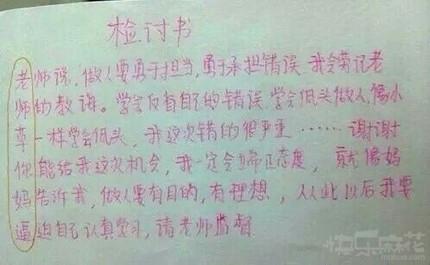 检讨书
老师说，做人要勇于担当，勇于承担错误。我会劳记老
师的教诲。学会反省自己的错误，学会低头做人，像小
草一样学会低头，我这次错的很严重……谢谢
你能给我这次机会，我一定会端正态度，就像妈
妈告诉我，做人要有目的，有理想，从此以后我要
逼迫自己认真学习，请老师监督
快乐麻花